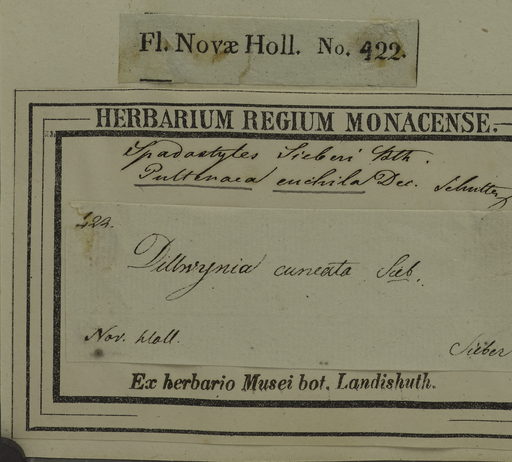 Fl. Novæ Holl. No. 422.
HERBARIUM REGIUM MONACENSE.
Spadostyles Sieberi Bth.
Pultenaea euchila Dec. Schultes
422.
Dillwynia cuneata Sieb.
Nov. Holl.
Sieber
Ex herbario Musei bot. Landishuth.